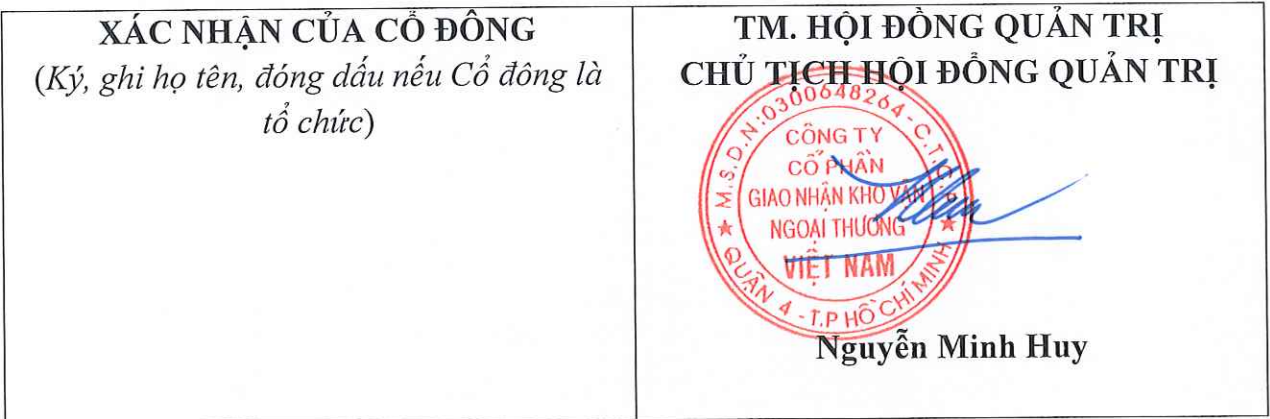 XÁC NHẬN CỦA CỔ ĐÔNG
(Ký, ghi họ tên, đóng dấu nếu Cổ đông là
tổ chức)
TM. HỘI ĐỒNG QUẢN TRỊ
CHỦ TỊCH HỘI ĐỒNG QUẢN TRỊ
M.S.D.N:0300648264-C.T.C.P
CÔNG TY
CỔ PHẦN
GIAO NHẬN KHO VẬN
NGOẠI THƯƠNG
VIỆT NAM
QUẬN 4 - T.P HỒ CHÍ MINH
Nguyễn Minh Huy